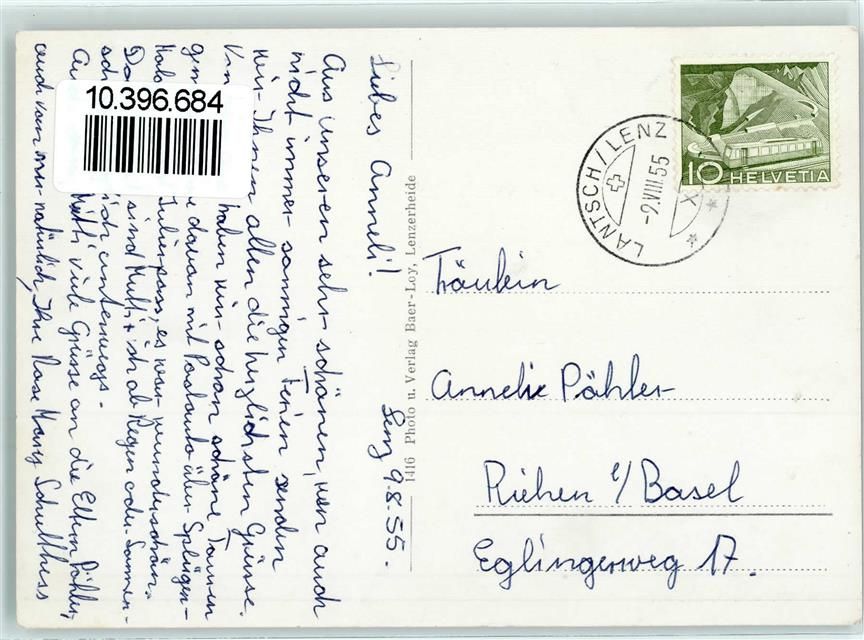 Liebes Anneli!
Lenz 9.8.55.
Aus unseren sehr schönen, wen auch
nicht immer sonnigen Ferien senden
wir Ihnen allen die herzlichsten Grüsse.
haben wir schon schöne Touren
davon mit Postauto über Splügen-
Julierpass, es war wunderschön.
sind Mutti + ich ob Regen oder Sonnen-
unterwegs.
Mutti viele Grüsse an die Eltern Pöhler,
auch von mir natürlich, Ihre Rose Mary Schulthess
1416 Photo u. Verlag Baer-Loy, Lenzerheide
10.396.684
LANTSCH/LENZ
-9.VIII.55
X
10 HELVETIA
Fräulein
Annelie Pöhler
Riehen b/Basel
Eglingerweg 17.